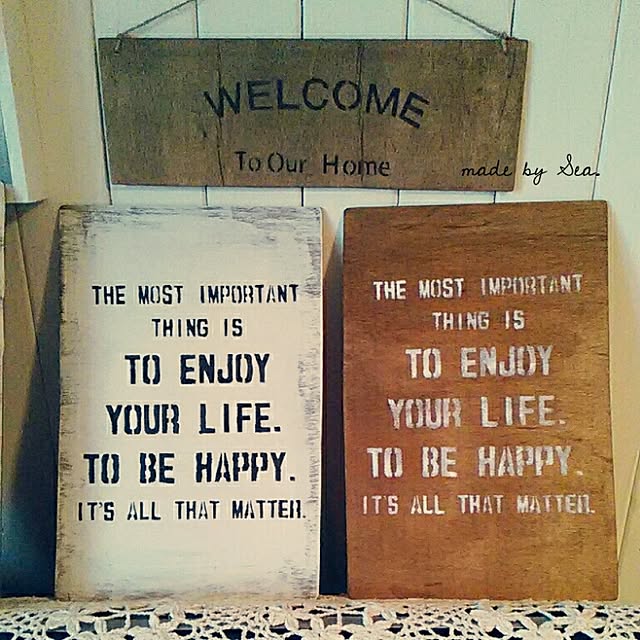 WELCOME
To Our Home
made by Sea.
THE MOST IMPORTANT
THING IS
TO ENJOY
YOUR LIFE.
TO BE HAPPY.
IT'S ALL THAT MATTER.
THE MOST IMPORTANT
THING IS
TO ENJOY
YOUR LIFE.
TO BE HAPPY.
IT'S ALL THAT MATTER.